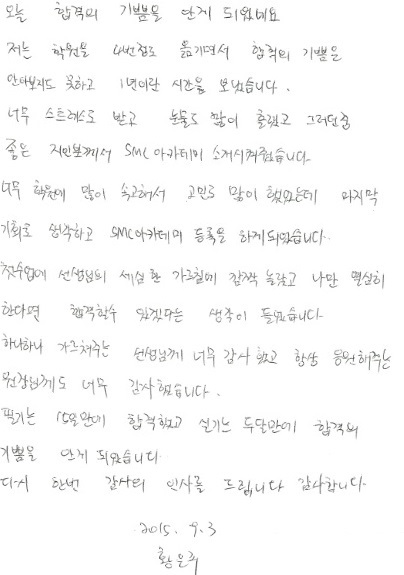 오늘 합격의 기쁨을 안게 되었네요
저는 학원을 4번정도 옮기면서 합격의 기쁨은
안아보지도 못하고 1년이란 시간을 보냈습니다.
너무 스트레스도 받고 눈물도 많이 흘렸고 그러던중
좋은 지인분께서 SMC아카데미 소개시켜주셨습니다.
너무 학원에 많이 속고해서 고민도 많이 했었는데 마지막
기회로 생각하고 SMC아카데미 등록을 하게되었습니다.
첫수업에 선생님의 세심한 가르침에 깜짝 놀랐고 나만 열심히
한다면 합격할수 있겠다는 생각이 들었습니다.
하나하나 가르쳐주는 선생님께 너무 감사했고 항상 응원해주는
원장님께도 너무 감사했습니다.
필기는 15일만에 합격했고 실기는 두달만에 합격의
기쁨을 안게 되었습니다.
다시 한번 감사의 인사를 드립니다 감사합니다.
2015. 9. 3
황은주